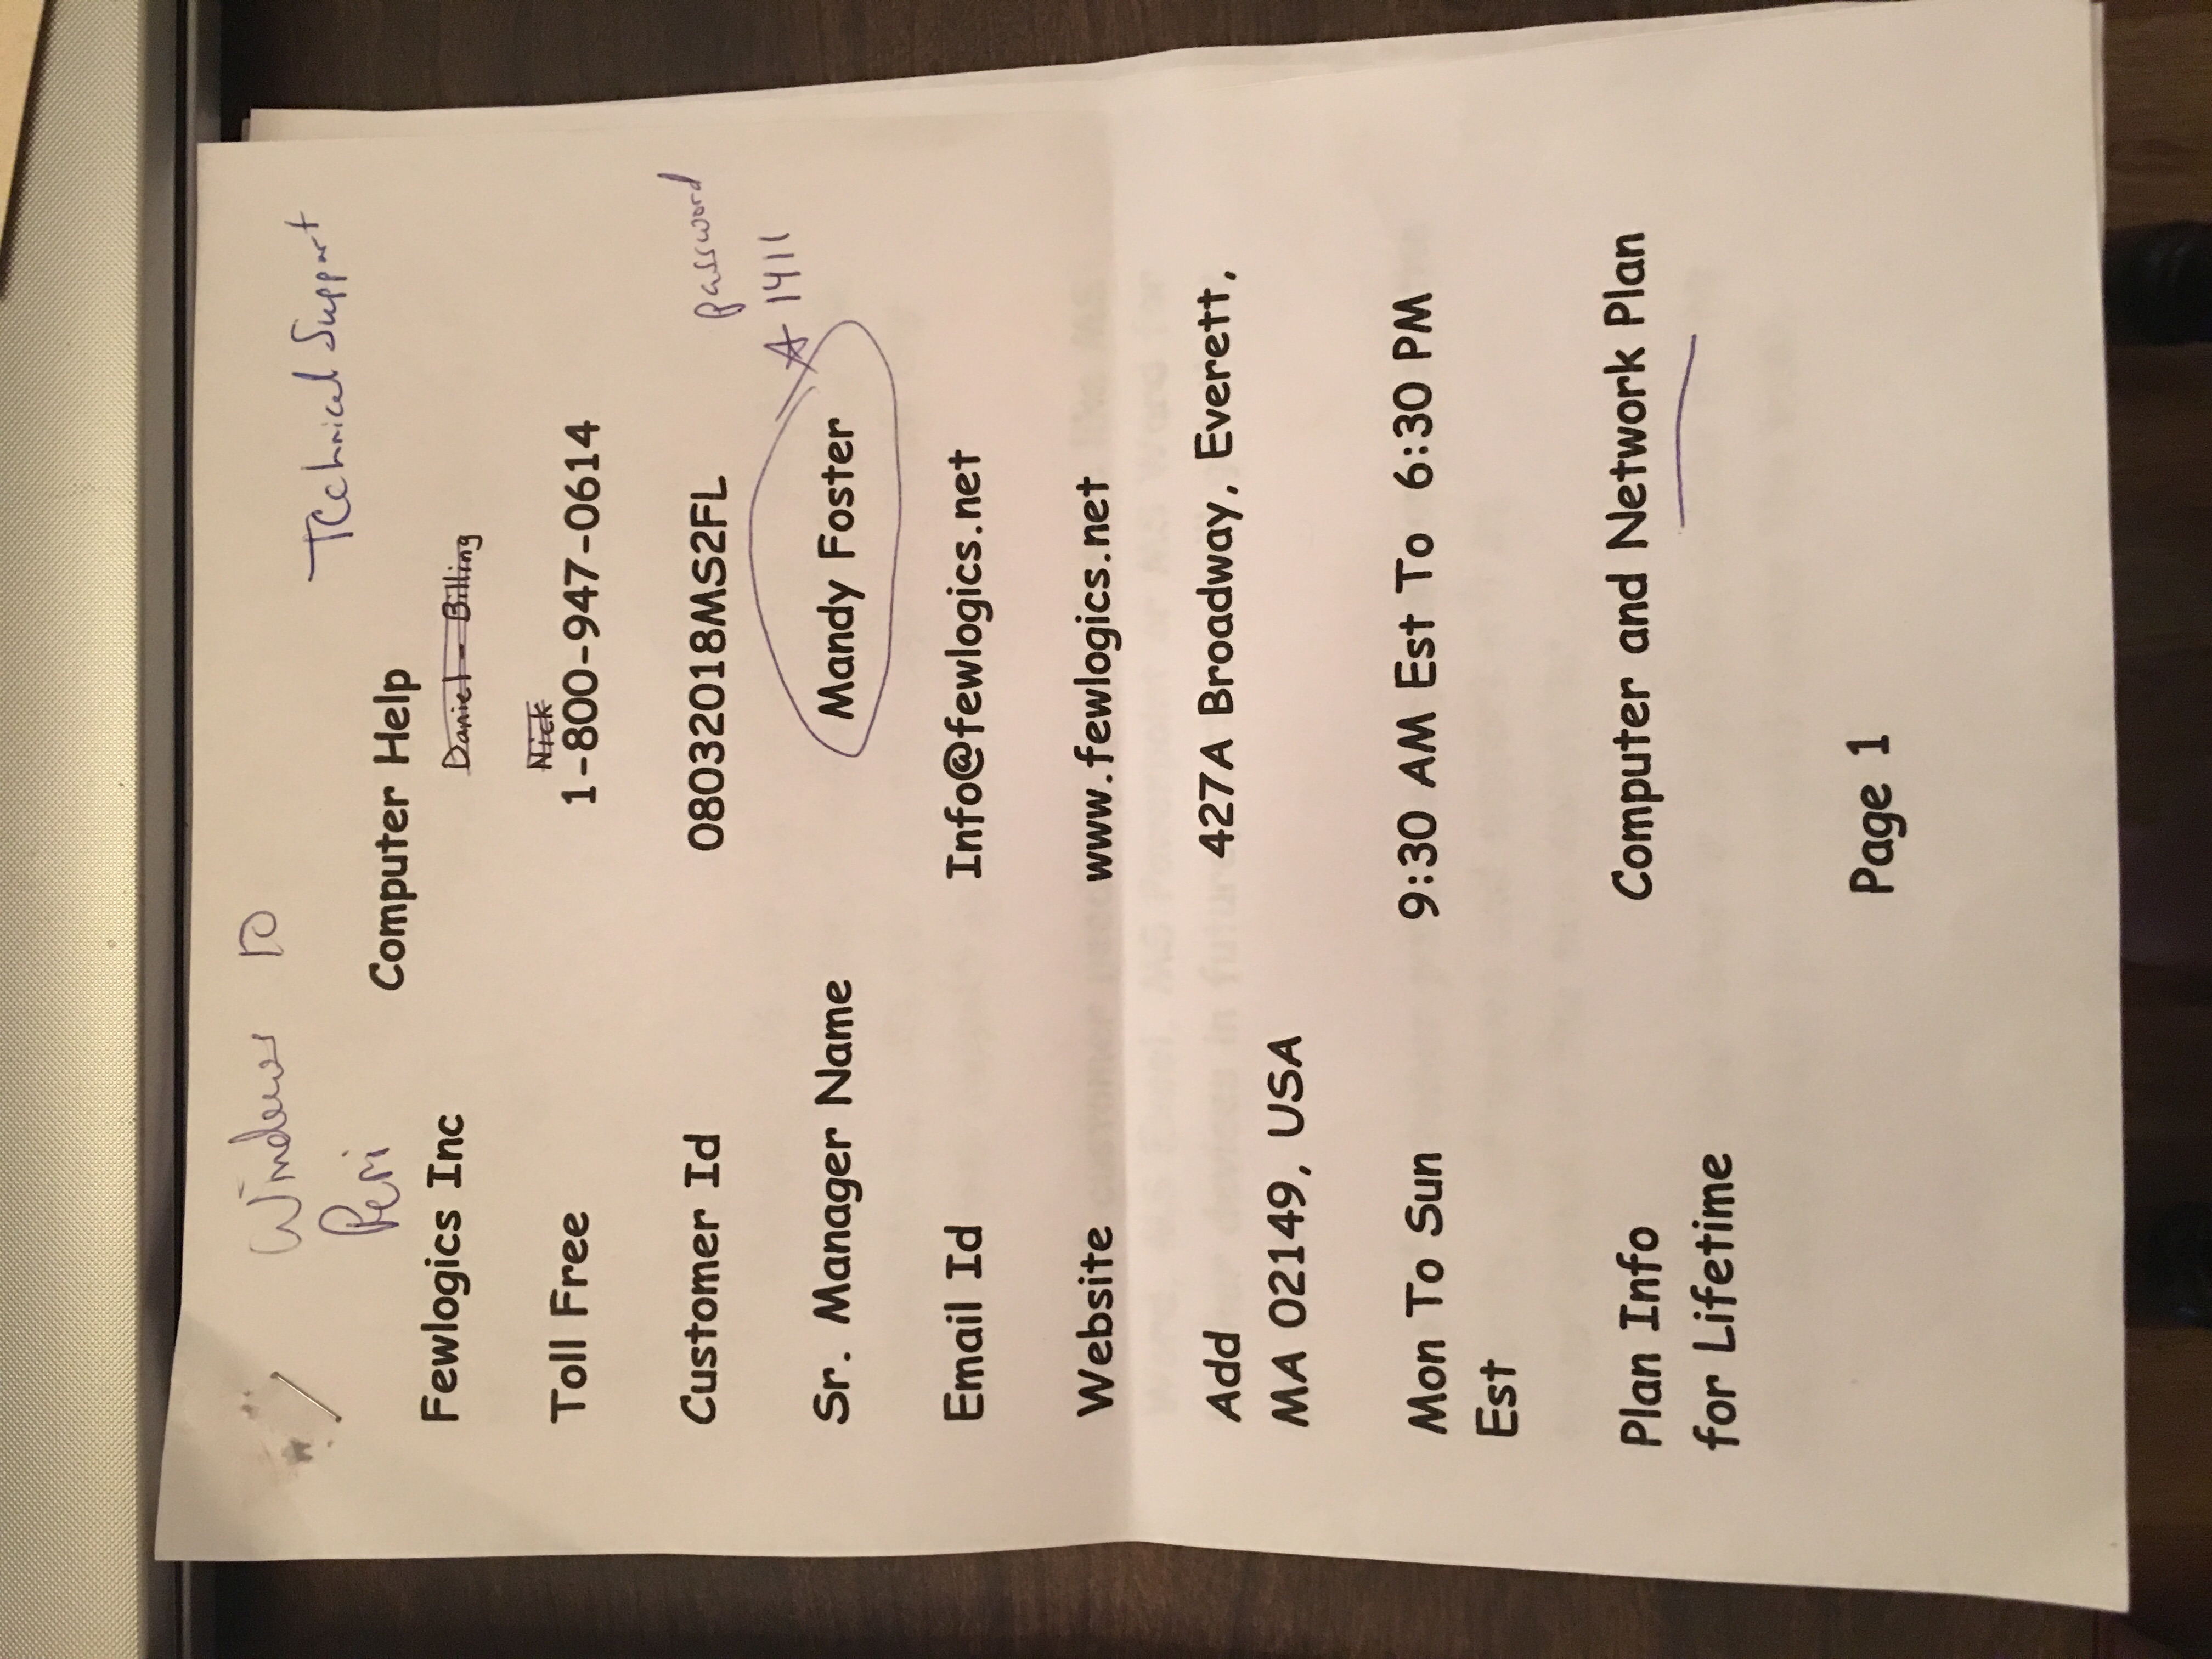 Windows 10
Technical Support
Peri
Computer Help
Fewlogics Inc
Daniel - Billing
Nick
Toll Free 1-800-947-0614
password
Customer Id 08032018MS2FL
A 1411
Sr. Manager Name Mandy Foster
Email Id Info@fewlogics.net
Website www.fewlogics.net
Add 427A Broadway, Everett,
MA 02149, USA
Mon To Sun 9:30 AM Est To 6:30 PM
Est
Plan Info Computer and Network Plan
for Lifetime
Page 1